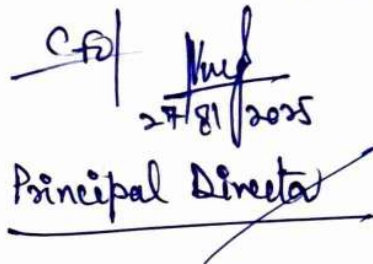 CFO
27/81/2025
Principal Director